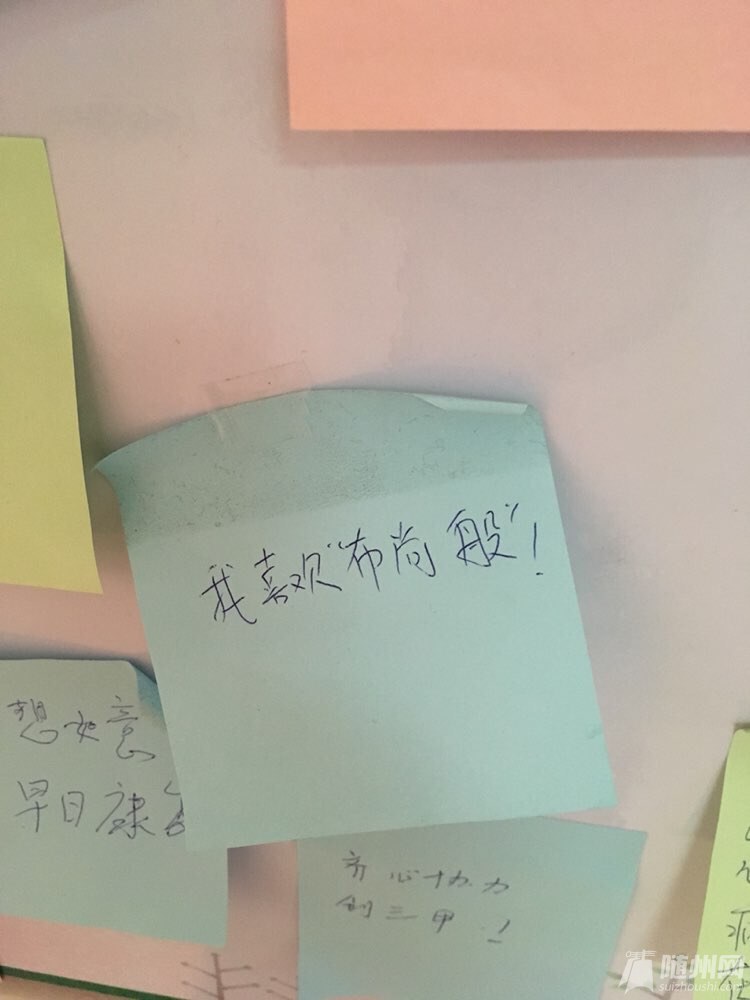 我喜欢“布尚般”!
想如意
早日康
齐心协力
创三甲!
随州网
suizhoushi.com